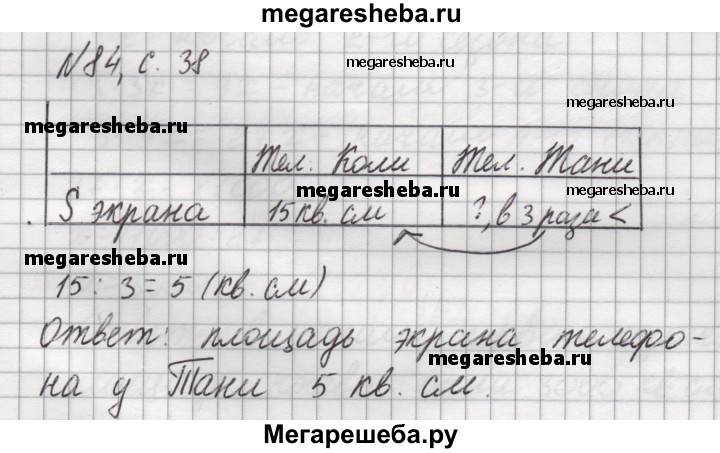 megaresheba.ru
N84, с. 38
megaresheba.ru
megaresheba.ru
megaresheba.ru
Тел. Коли Тел. Тани
megaresheba.ru megaresheba.ru
S экрана 15 кв. см ?, в 3 раза <
megaresheba.ru
15 : 3 = 5 (кв. см)
Ответ: площадь экрана телефо-
megaresheba.ru
на у Тани 5 кв. см.
Мегарешеба.ру